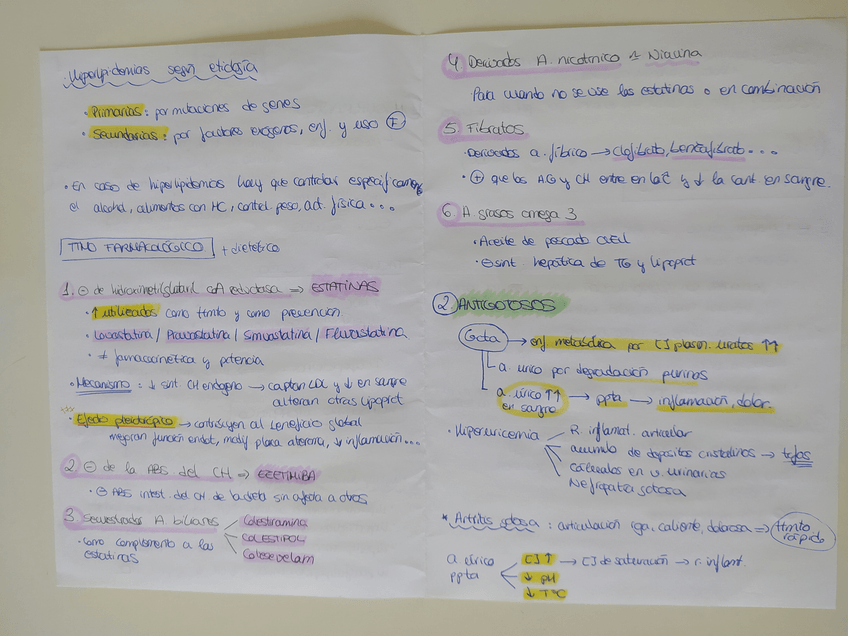 Hiperlipidemias según etiología
· Primarias: por mutaciones de genes
· Secundarias: por factores exógenos, enf. y uso F
· En caso de hiperlipidemias hay que controlar específicamente
el alcohol, alimentos con HC, control peso, act. física...
TTMO FARMACOLÓGICO + dietético
1. ⊖ de hidroximetilglutaril CoA reductasa ⇒ ESTATINAS
· ↑ utilizados como ttmto y como prevención
· Lovastatina / Pravastatina / Simvastatina / Fluvastatina
· ≠ farmacocinética y potencia
· Mecanismo: ↓ sint CH endógeno → captan LDL y ↓ en sangre
alteran otras lipoprot
· Efecto pleiotrópico → contribuyen al beneficio global
mejoran función endot, modif placa ateroma, ↓ inflamación...
2. ⊖ de la ABS del CH ⇒ EZETIMIBA
· ⊖ ABS intest. del CH de la dieta sin afecta a otros
3 Secuestrados A. biliares
Colestiramina
COLESTIPOL
Colesevelam
· Como complemento a las
estatinas
4 Derivados A. nicotínico ≃ Niacina
Para cuando no se use las estatinas o en combinación
5. Fibratos
· Derivados a. fíbrico → Clofibrato, benzafibrato...
· ⊕ que los AG y CH entre en la C y ↓ la cant en sangre.
6. A. grasos omega 3
· Aceite de pescado
· ⊖ sint. hepática de TG y lipoprot
2 ANTIGOTOSOS
Gota → enf metabólica por [] plasm. uratos ↑↑
a. úrico por degradación purinas
a. úrico ↑↑
en sangre → ppta → inflamación, dolor.
· Hiperuricemia
R. inflamat. articular
acumulo de depositos cristalinos → tofos
Cálculos en v. urinarias
Nefropatía gotosa
* Artritis gotosa: articulación roja, caliente, dolorosa ⇒ ttmto
rápido
a úrico
ppta
[] ↑ → [] de saturación → r. inflamt.
↓ pH
↓ TªC